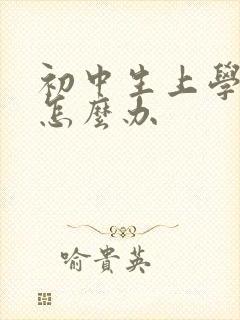 初中生上學
怎麼办
喻貴英